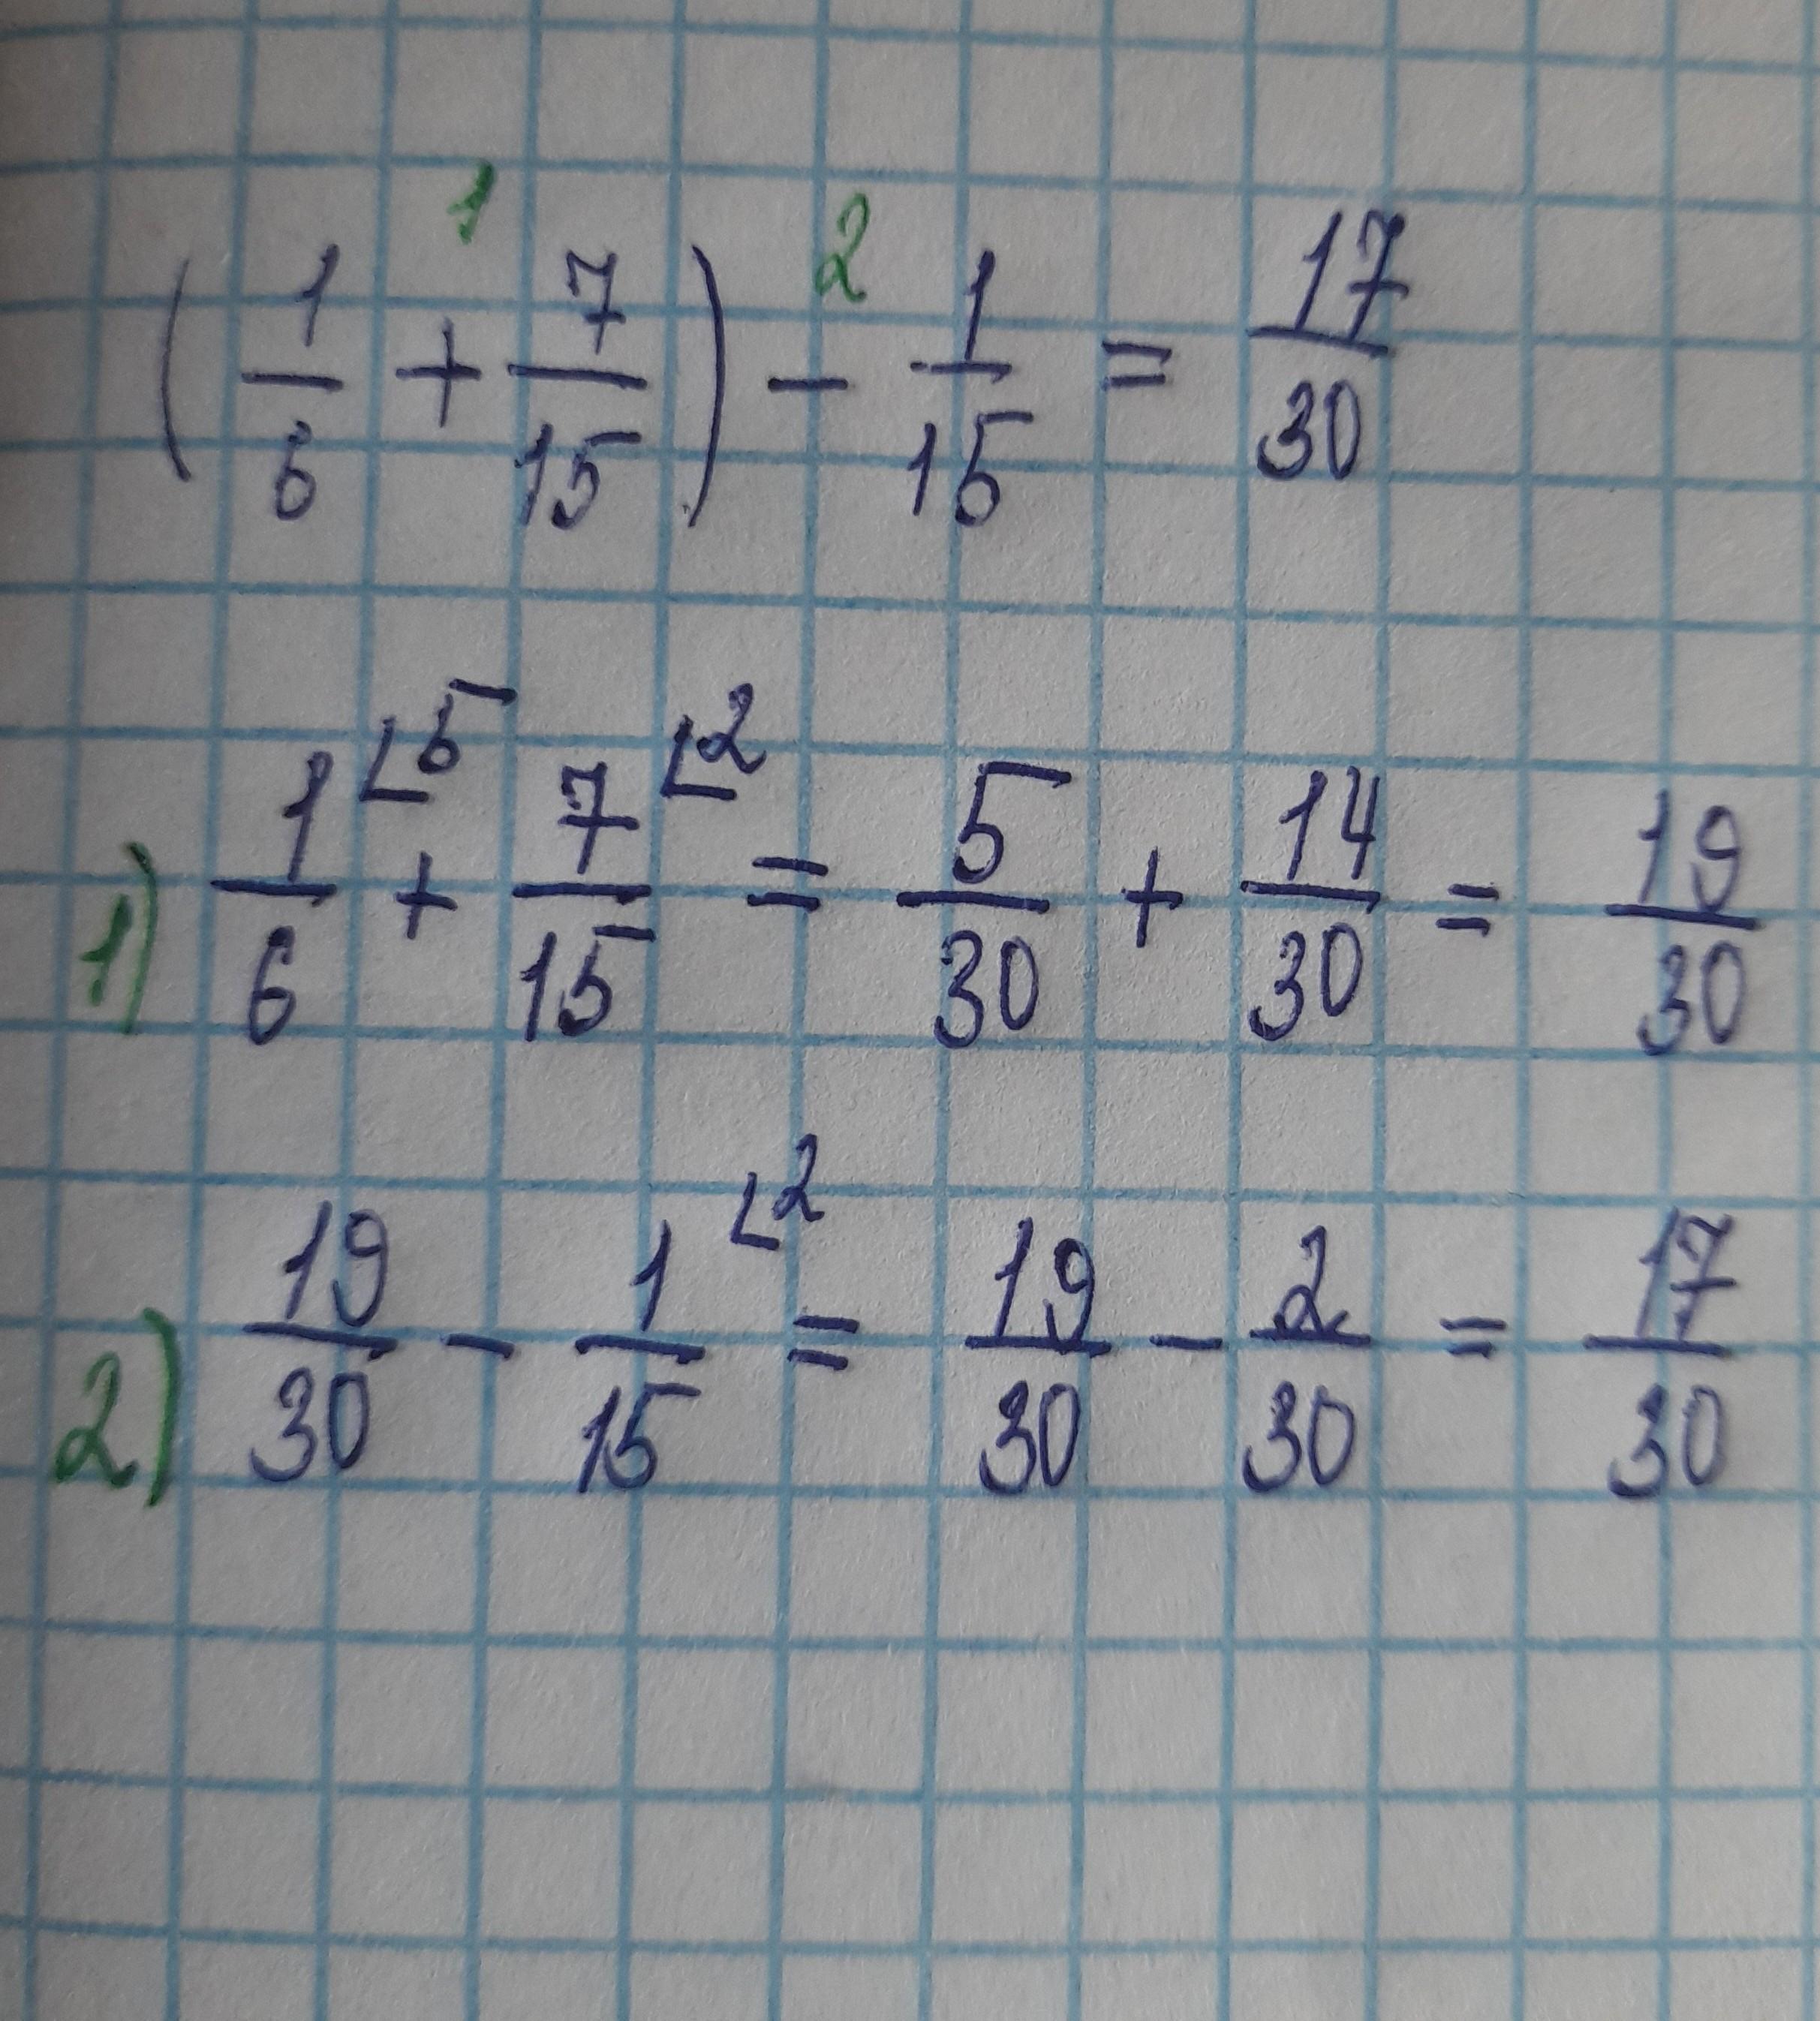 1 2
(1/6 + 7/15) - 1/15 = 17/30
1) 1/6 ⌊5 + 7/15 ⌊2 = 5/30 + 14/30 = 19/30
2) 19/30 - 1/15 ⌊2 = 19/30 - 2/30 = 17/30